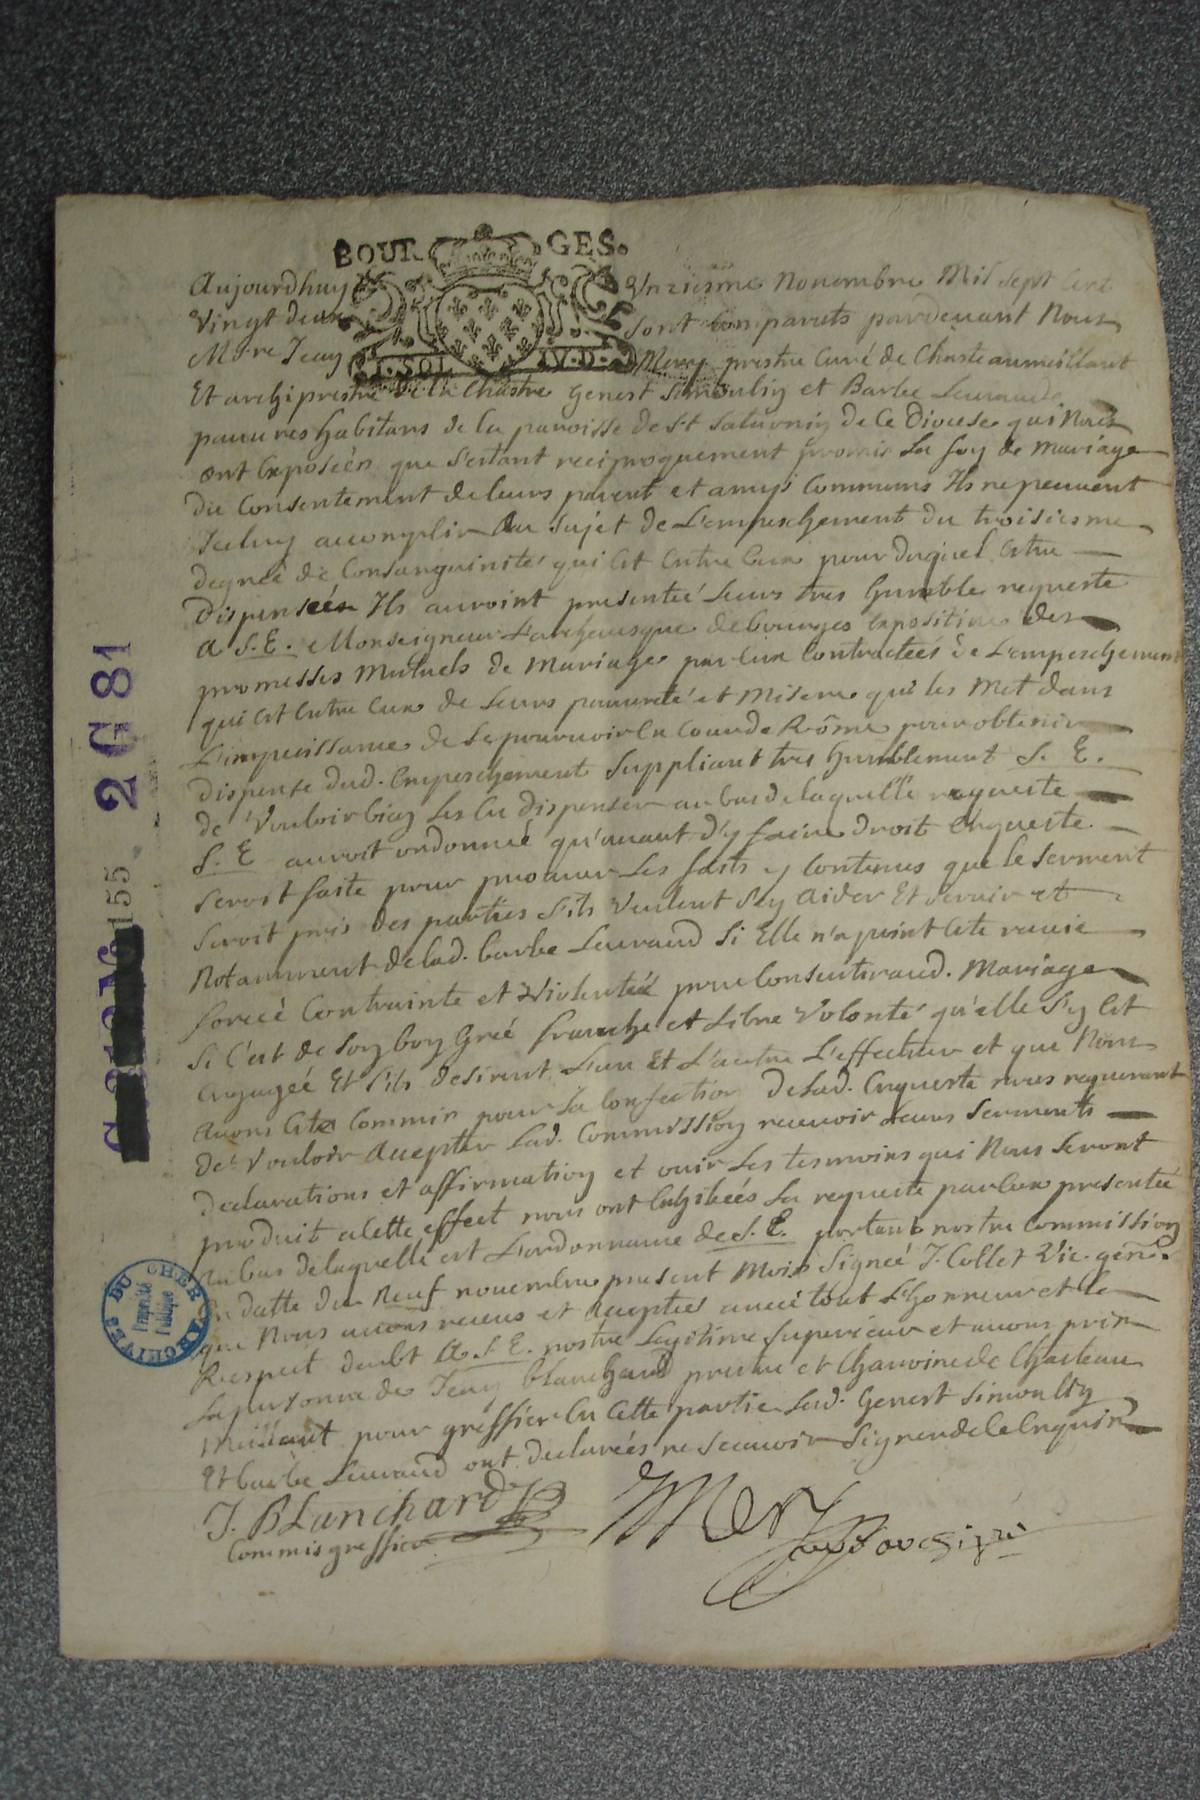 BOUR GES.
Aujourdhuy Unziesme Novembre Mil Sept Cent
Vingt deux Sont Comparuts pardevant Nous
Mtre Jean Mery prestre Curé de Chasteaumeillant
1. SOL. IV. D.
Et archiprestre de la Chastre Genest Simoulin et Barbe Leuraude
pauures habitans de la paroisse de St Saturnin de Ce Diocese qui Nous
ont Exposéés que s'estant reciproquement promis La foy de Mariage
du Consentement de leurs parent et amys Communs Ils ne peuuent
Jceluy accomplir Au sujet de L'empeschement du troisiesme
degréé de Consanguinité qui est Entre Eux pour duquel estre
dispenséés Ils auroint presentéé Leurs tres humble requeste
A S.E. Monseigneur L'archeuesque de bourges expositiue des
promesses Mutuels de Mariage par Eux Contractéés de L'empeschement
qui est Entre Eux de Leurs pauureté et Misere qui les Met dans
L'impuissance de se pouruoir En Cour de Rôme pour obtenir
dispense dud. Empeschement Suppliant tres humblement S. E.
de Vouloir bien Les En dispenser au bas de laquelle requeste
S. E auroit ordonnéé qu'auant d'y faire droit Enqueste
seroit faite pour prouuer Les faits y Contenus que le serment
seroit pris des parties s'ils Veulent s'en Aider Et seruir et
Notamment de lad. barbe Leuraud si Elle n'a point este rauie
forcéé Contrainte et Violentéé pour Consentir aud. Mariage
si C'est de son bon Gréé franche et Libre Volonté qu'elle s'y est
Engagéé Et s'ils desirent L'un Et L'autre L'effectuer et que Nous
auons este Commis pour La Confection de lad. Enqueste nous requerant
de Vouloir Accepter Lad. Commission receuoir Leurs serments
declarations et affirmation et ouir Les tesmoins qui Nous seront
produit a Cette effect nous ont Exhibéés La requeste par Eux presentéé
Au bas de laquelle est L'ordonnance de S. E. portant nostre Commission
En datte du Neuf nouembre present Mois Signéé J. Collet Vic. gen.
que Nous auons receus et Acceptes auec tout L'honneur et le
Respect deubt A S. E. nostre Legitime superieur et auons pris
La personne de Jean blanchard prestre et Chanoine de Chasteau
Meillant pour greffier En Cette partie Led. Genest Simoulin
Et barbe Leuraud ont declaréés ne scauoir Signer de Ce Enquis
J. BLanchard
Commis greffier
Mery
2 G 81
155
ARCHIVES DU CHER
Propriété
Publique